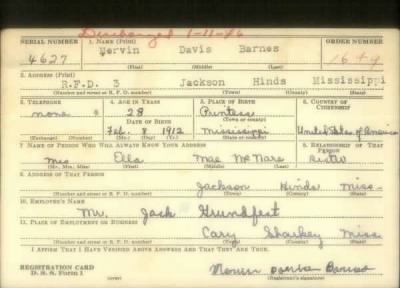 Discharged 1-11-46
SERIAL NUMBER 1. NAME (Print) ORDER NUMBER
4627 Mervin Davis Barnes 1649
(First) (Middle) (Last)
2. ADDRESS (Print)
R.F.D. 3 Jackson Hinds Mississippi
(Number and street or R. F. D. number) (Town) (County) (State)
3. TELEPHONE 4. AGE IN YEARS 5. PLACE OF BIRTH 6. COUNTRY OF CITIZENSHIP
none 28
DATE OF BIRTH (Town or county)
Feb. 8 1912 Mississippi United States of America
(Exchange) (Number) (Mo.) (Day) (Yr.) (State or country)
7. NAME OF PERSON WHO WILL ALWAYS KNOW YOUR ADDRESS 8. RELATIONSHIP OF THAT PERSON
Mrs Ella Mae sister
(Mr., Mrs., Miss) (First) (Middle) (Last)
9. ADDRESS OF THAT PERSON
Jackson Hinds Miss
(Number and street or R. F. D. number) (Town) (County) (State)
10. EMPLOYER'S NAME
Mr. Jack Grundfest
11. PLACE OF EMPLOYMENT OR BUSINESS
Cary Sharkey Miss
(Number and street or R. F. D. number) (Town) (County) (State)
I AFFIRM THAT I HAVE VERIFIED ABOVE ANSWERS AND THAT THEY ARE TRUE.
REGISTRATION CARD
D. S. S. Form 1 (Registrant's signature)
Davis Barnes